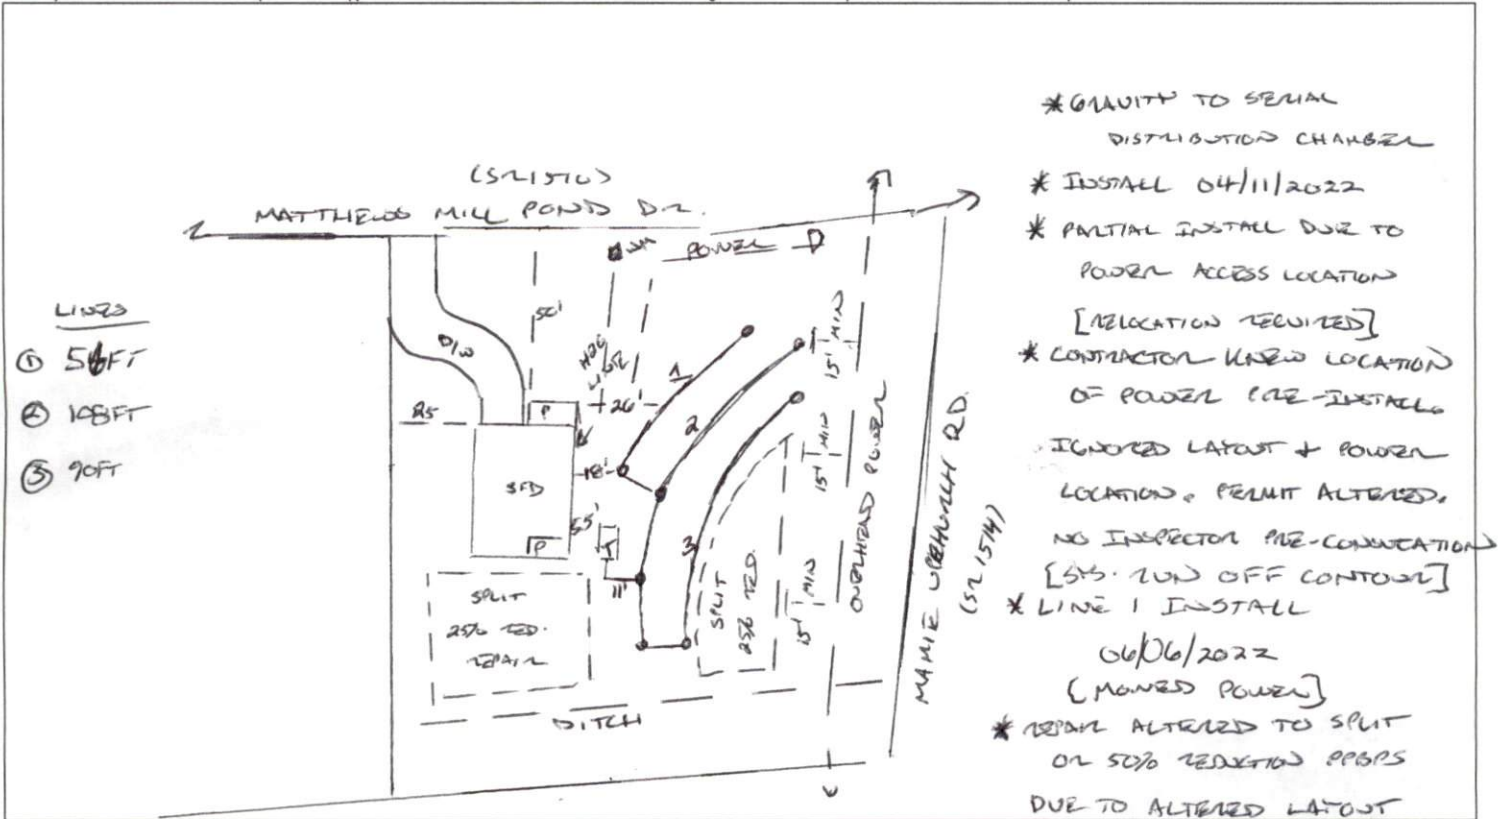 (SR1510)
MATTHEWS MILL POND DR.
LINES
① 54FT
② 108FT
③ 90FT
D/W
50'
WM
POWER
H2O
LINE
26'
1
2
3
85
P
SFD
P
18'
55'
T
11'
15' MIN
15' MIN
15' MIN
OVERHEAD POWER
MAMIE UPCHURCH RD.
(SR 1514)
SPLIT
25% RED.
REPAIR
SPLIT
25% RED.
DITCH
* GRAVITY TO SERIAL
DISTRIBUTION CHAMBER
* INSTALL 04/11/2022
* PARTIAL INSTALL DUE TO
POWER ACCESS LOCATION
[RELOCATION REQUIRED]
* CONTRACTOR KNEW LOCATION
OF POWER PRE-INSTALL.
IGNORED LAYOUT + POWER
LOCATION. PERMIT ALTERED.
NO INSPECTOR PRE-CONSULTATION
RUN OFF CONTOUR]
* LINE 1 INSTALL
06/06/2022
[MOVED POWER]
* REPAIR ALTERED TO SPLIT
OR 50% REDUCTION PPBPS
DUE TO ALTERED LAYOUT